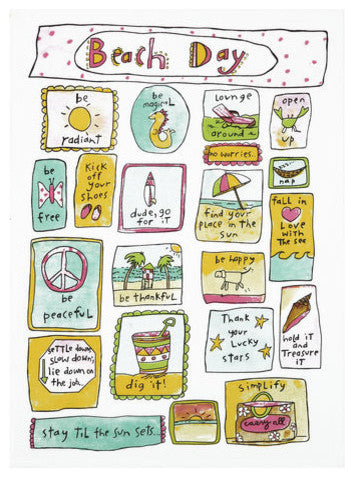 Beach Day
be
radiant
be
magical
Lounge
around
open
up
no worries.
be
free
Kick
off
your
shoes
dude, go
for it
find your
place in the
sun
nap
fall in
Love
with
the sea
be
peaceful
be thankful
be happy
Thank
your
Lucky
stars
hold it
and
Treasure
it
settle down,
slow down,
lie down on
the job...
dig it!
simplify
carry all
stay til the sun sets...